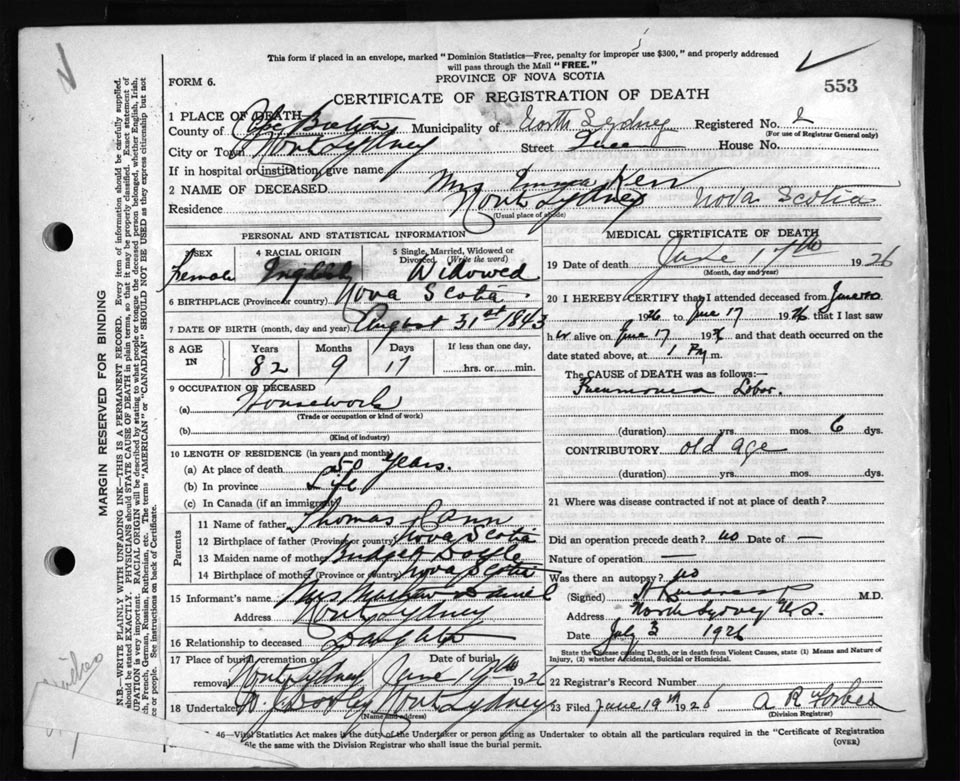 This form if placed in an envelope, marked "Dominion Statistics—Free, penalty for improper use $300," and properly addressed
will pass through the Mail "FREE."
FORM 6.
PROVINCE OF NOVA SCOTIA
553
CERTIFICATE OF REGISTRATION OF DEATH
1 PLACE OF DEATH—
County of Cape Breton Municipality of North Sydney Registered No.
(For use of Registrar General only)
City or Town North Sydney Street Queen House No.
If in hospital or institution, give name
2 NAME OF DECEASED Mrs Kerr
Residence North Sydney Nova Scotia
(Usual place of abode)
PERSONAL AND STATISTICAL INFORMATION
SEX Female
4 RACIAL ORIGIN English
5 Single, Married, Widowed or Divorced (Write the word) Widowed
6 BIRTHPLACE (Province or country) Nova Scotia
7 DATE OF BIRTH (month, day and year) August 31st 1843
8 AGE IN Years 82 Months 9 Days 17 If less than one day, hrs. or min.
9 OCCUPATION OF DECEASED
(a) Housework
(Trade or occupation or kind of work)
(b)
(Kind of industry)
10 LENGTH OF RESIDENCE (in years and months)
(a) At place of death 50 years.
(b) In province Life
(c) In Canada (if an immigrant)
Parents
11 Name of father Thomas
12 Birthplace of father (Province or country) Nova Scotia
13 Maiden name of mother Bridget Doyle
14 Birthplace of mother (Province or country) Nova Scotia
15 Informant's name Mrs
Address North Sydney
16 Relationship to deceased Daughter
17 Place of burial, cremation or removal North Sydney Date of burial June 19th 1926
18 Undertaker North Sydney
(Name and address)
46—Vital Statistics Act makes it the duty of the Undertaker or person acting as Undertaker to obtain all the particulars required in the "Certificate of Registration
file the same with the Division Registrar who shall issue the burial permit.
(OVER)
MEDICAL CERTIFICATE OF DEATH
19 Date of death June 17th 1926
(Month, day and year)
20 I HEREBY CERTIFY that I attended deceased from June
1926 to June 17 1926 that I last saw
her alive on June 17 1926 and that death occurred on the
date stated above, at 1 P.m.
The CAUSE of DEATH was as follows:—
Pneumonia Lobar.
(duration) yrs. mos. 6 dys.
CONTRIBUTORY old age
(duration) yrs. mos. dys.
21 Where was disease contracted if not at place of death?
Did an operation precede death? no Date of —
Nature of operation —
Was there an autopsy? no
(Signed) M.D.
Address North Sydney N.S.
Date July 3 1926
State the Disease causing Death, or in death from Violent Causes, state (1) Means and Nature of
Injury, (2) whether Accidental, Suicidal or Homicidal.
22 Registrar's Record Number
23 Filed June 19th 1926 A R Forbes
(Division Registrar)
MARGIN RESERVED FOR BINDING
N.B.—WRITE PLAINLY WITH UNFADING INK—THIS IS A PERMANENT RECORD. Every item of information should be carefully supplied.
should be stated EXACTLY. PHYSICIANS should STATE CAUSE OF DEATH in plain terms, so that it may be properly classified. Exact statement of
UPATION is very important. RACIAL ORIGIN will be described by stating to what people or tongue the deceased person belonged, whether English, Irish,
ch, French, German, Russian, Ruthenian, etc. The terms "AMERICAN" or "CANADIAN" SHOULD NOT BE USED as they express citizenship but not
or people. See instructions on back of Certificate.